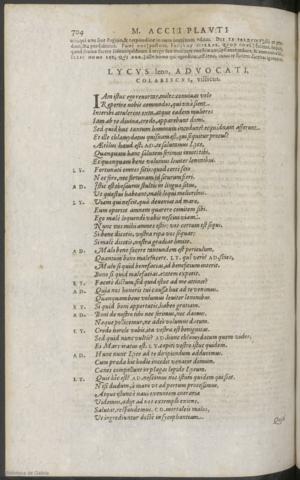 704 M. ACCII PLAVTI
LYCVS leno, ADVOCATI,
COLABISCVS, villicus.
IAm istuc ego reuortar, miles conuiuas uolo
Reperire nobis commodos, qui unà sient.
Interibi attulerint exta, atque eædem mulieres
Iam ab re diuina, credo, apparebunt domi.
Sed quid huc tantum hominum incedunt? ecquidnam afferunt?
Et ille chlamydatus quisnam est, qui sequitur procul?
Aetoli ciues te salutamus Lyce,
Quanquam hanc salutem ferimus inuiti tibi,
Et quanquam bene uolumus leuiter lenonibus.
LY. Fortunati omnes sitis: quod certò scio
Nec fore, nec fortunam id situram fieri.
AD. Istic est thesaurus stultis in lingua situs,
Vt quæstui habeant, malè loqui melioribus.
LY. Viam qui nescit, quà deueniat ad mare,
Eum oportet amnem quærere comitem sibi.
Ego malè loquendi uobis nesciui uiam:
Nunc uos mihi amnes estis: uos certum est sequi.
Si bene dicetis, uostra ripa uos sequar:
Si malè dicetis, uestro gradiar limite.
AD. Malo bene facere tantundem est periculum,
Quantum bono malefacere. LY. qui uerò? AD. scies,
Malo si quid benefacias, id beneficium interit.
Bono si quid malefacias, ætatem expetit.
LY. Facetè dictum: sed quid istuc ad me attinet?
AD. Quia nos honoris tui causa huc ad te uenimus.
Quanquam bene uolumus leuiter lenonibus.
LY. Si quid boni apportatis, habeo gratiam.
AD. Boni de nostro tibi nec ferimus, nec damus.
Neque pollicemur, ne adeò uolumus datum.
LY. Credo hercle uobis, ita uestra est benignitas.
Sed quid nunc uultis? AD. hunc chlamydatum quem uides:
Ei Mars iratus est. LY. capiti uestro istuc quidem.
AD. Hunc nunc Lyce ad te diripiundum adducimus.
Cum præda hic hodie incedet uenator domum.
Canes compellunt in plagas lepidè Lycum.
LY. Quis hic est? AD. nescimus nos istum quidem qui siet.
Nisi dudum, à mare ut ad portum processimus,
Atque istunc è naui exeuntem oneraria
Videmus, adijt ad nos extemplò exiens.
Salutat, respondemus. CO. mortales malos,
Vt ingrediuntur doctè in sycophantiam.
Quid
Biblioteca de Galicia